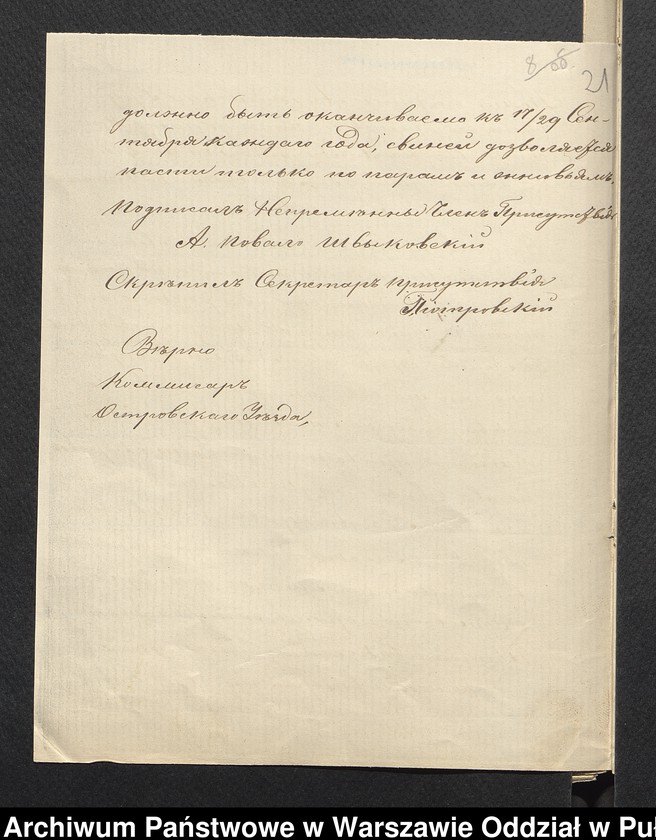 21
должно быть оканчиваемо къ 17/29 Сен-
тября каждаго года, свиней дозволяется
пасти только по парамъ и
Подписалъ Непремѣнный Членъ Присутствія
А. Повало Швыковскій
Скрѣпилъ Секретарь Присутствія
Піотровскій
Вѣрно
Коммисаръ
Островскаго Уѣзда,
Archiwum Państwowe w Warszawie Oddział w Puł